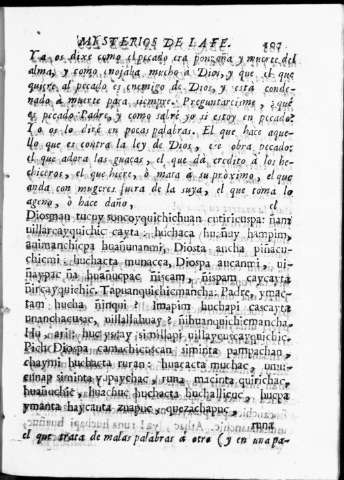 MYSTERIOS DE LA FE. 187
Ya os dixe como el pecado era ponzoña y muerte del
alma, y como enojaba mucho a Dios, y que el que
quiere al pecado es enemigo de Dios, y està conde-
nado à muerte para siempre. Preguntareisme, ¿què
es pecado Padre, y como sabrè yo si estoy en pecado?
Yo os lo dirè en pocas palabras. El que hace aque-
llo que es contra la ley de Dios, ese obra pecado:
el que adora las guacas, el que dà credito à los he-
chiceros, el que hiere, ò mata à su proximo, el que
anda con mugeres fuera de la suya, el que toma lo
ageno, ò hace daño, el
Diosman tucuy soncoyquichichuan cutiricuspa: ñam
uillarcayquichic cayta: huchaca huañuy hampim,
animanchicpa huañunanmi, Diosta ancha piñacu-
chicmi: huchacta munacca, Diospa aucanmi, ui-
ñaypac ña huañucpac ñiscam, ñispam caycayta
ñircayquichic. Tapuanquichicmancha: Padre, ymac-
tam hucha ñinqui? Imapim huchapi cascayta
unanchacusac, uillallahuay? ñihuanquichicmancha.
simillapi uillaycuscayquichic.
Pich Diospa camachicuscan siminta pampachan,
chaymi huchacta ruran: huacacta muchac, umu-
cunap siminta yupaychac, runa macinta quirichac,
huañuchic, huachuc huchacta huchallicuc, hucpa
ymanta haycanta zuapuc, quezachapuc,
runa
el que trata de malas palabras à otro (y en una pa-